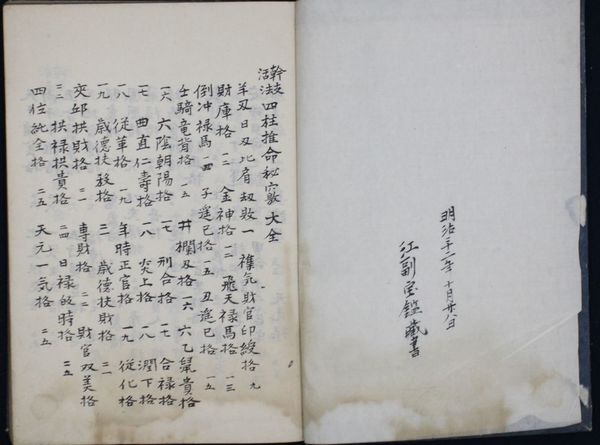 明治 十月廿八日
江副宝鑑蔵書
幹支活法四柱推命秘竅大全
羊刃日刃比肩刼敗一 雜気財官印綬格 九
財庫格 一二 金神格 一二 飛天禄馬格 一三
倒冲禄馬 一四 子遥巳格 一五 丑遥巳格 一五
壬騎竜背格 一五 井欄叉格 一六 六乙鼠貴格
一六 六陰朝陽格 一七 刑合格 一七 合禄格
一七 曲直仁壽格 一八 炎上格 一八 潤下格
一八 従革格 一九 年時正官格 一九 従化格
一九 歳德扶殺格 二一 歳德扶財格 二一
夾邱拱財格 二一 専財格 二二 財官双美格
二二 拱禄拱貴格 二四 日禄皈時格 二五
四位純全格 二五 天元一気格 二五